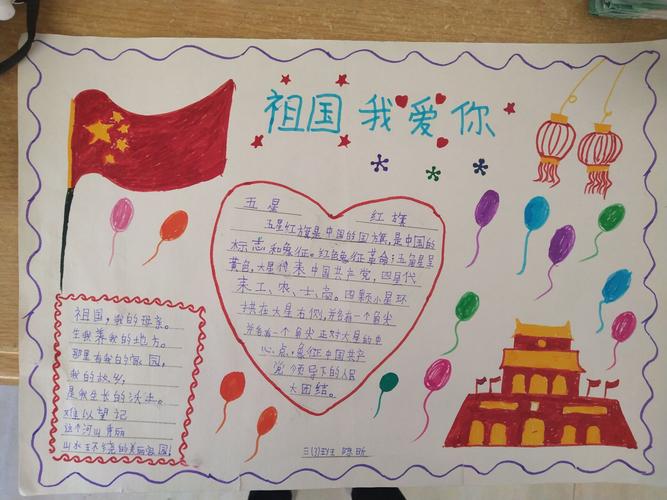 祖国我爱你
五星 红旗
五星红旗是中国的国旗,是中国的
标志和象征。红色象征革命;五角星呈
黄色,大星代表中国共产党,四星代
表工、农、士、商。四颗小星环
拱在大星右侧,并各有一个角尖
并各有一个角尖正对大星的中
心点,象征中国共产
党领导下的人民
大团结。
祖国,我的母亲。
生我养我的地方。
那里有我的家园,
我的故乡,
是我生长的沃土。
难以望记
这个河山秀丽
山水王不绕的美丽家园!
三(3)班